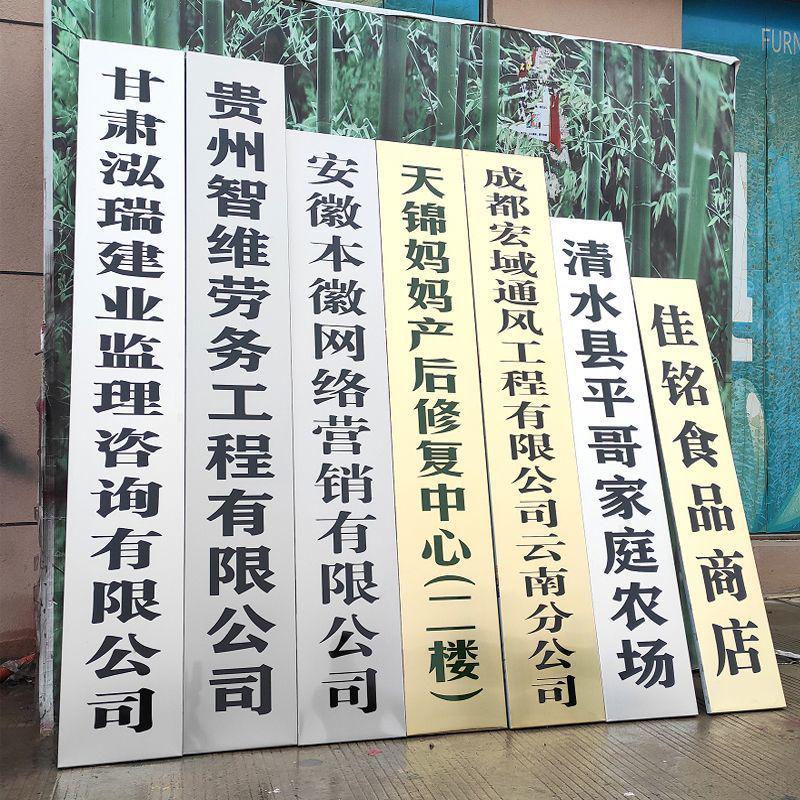 甘肃泓瑞建业监理咨询有限公司
贵州智维劳务工程有限公司
安徽本徽网络营销有限公司
天锦妈妈产后修复中心(二楼)
成都宏域通风工程有限公司云南分公司
清水县平哥家庭农场
佳铭食品商店
FURN